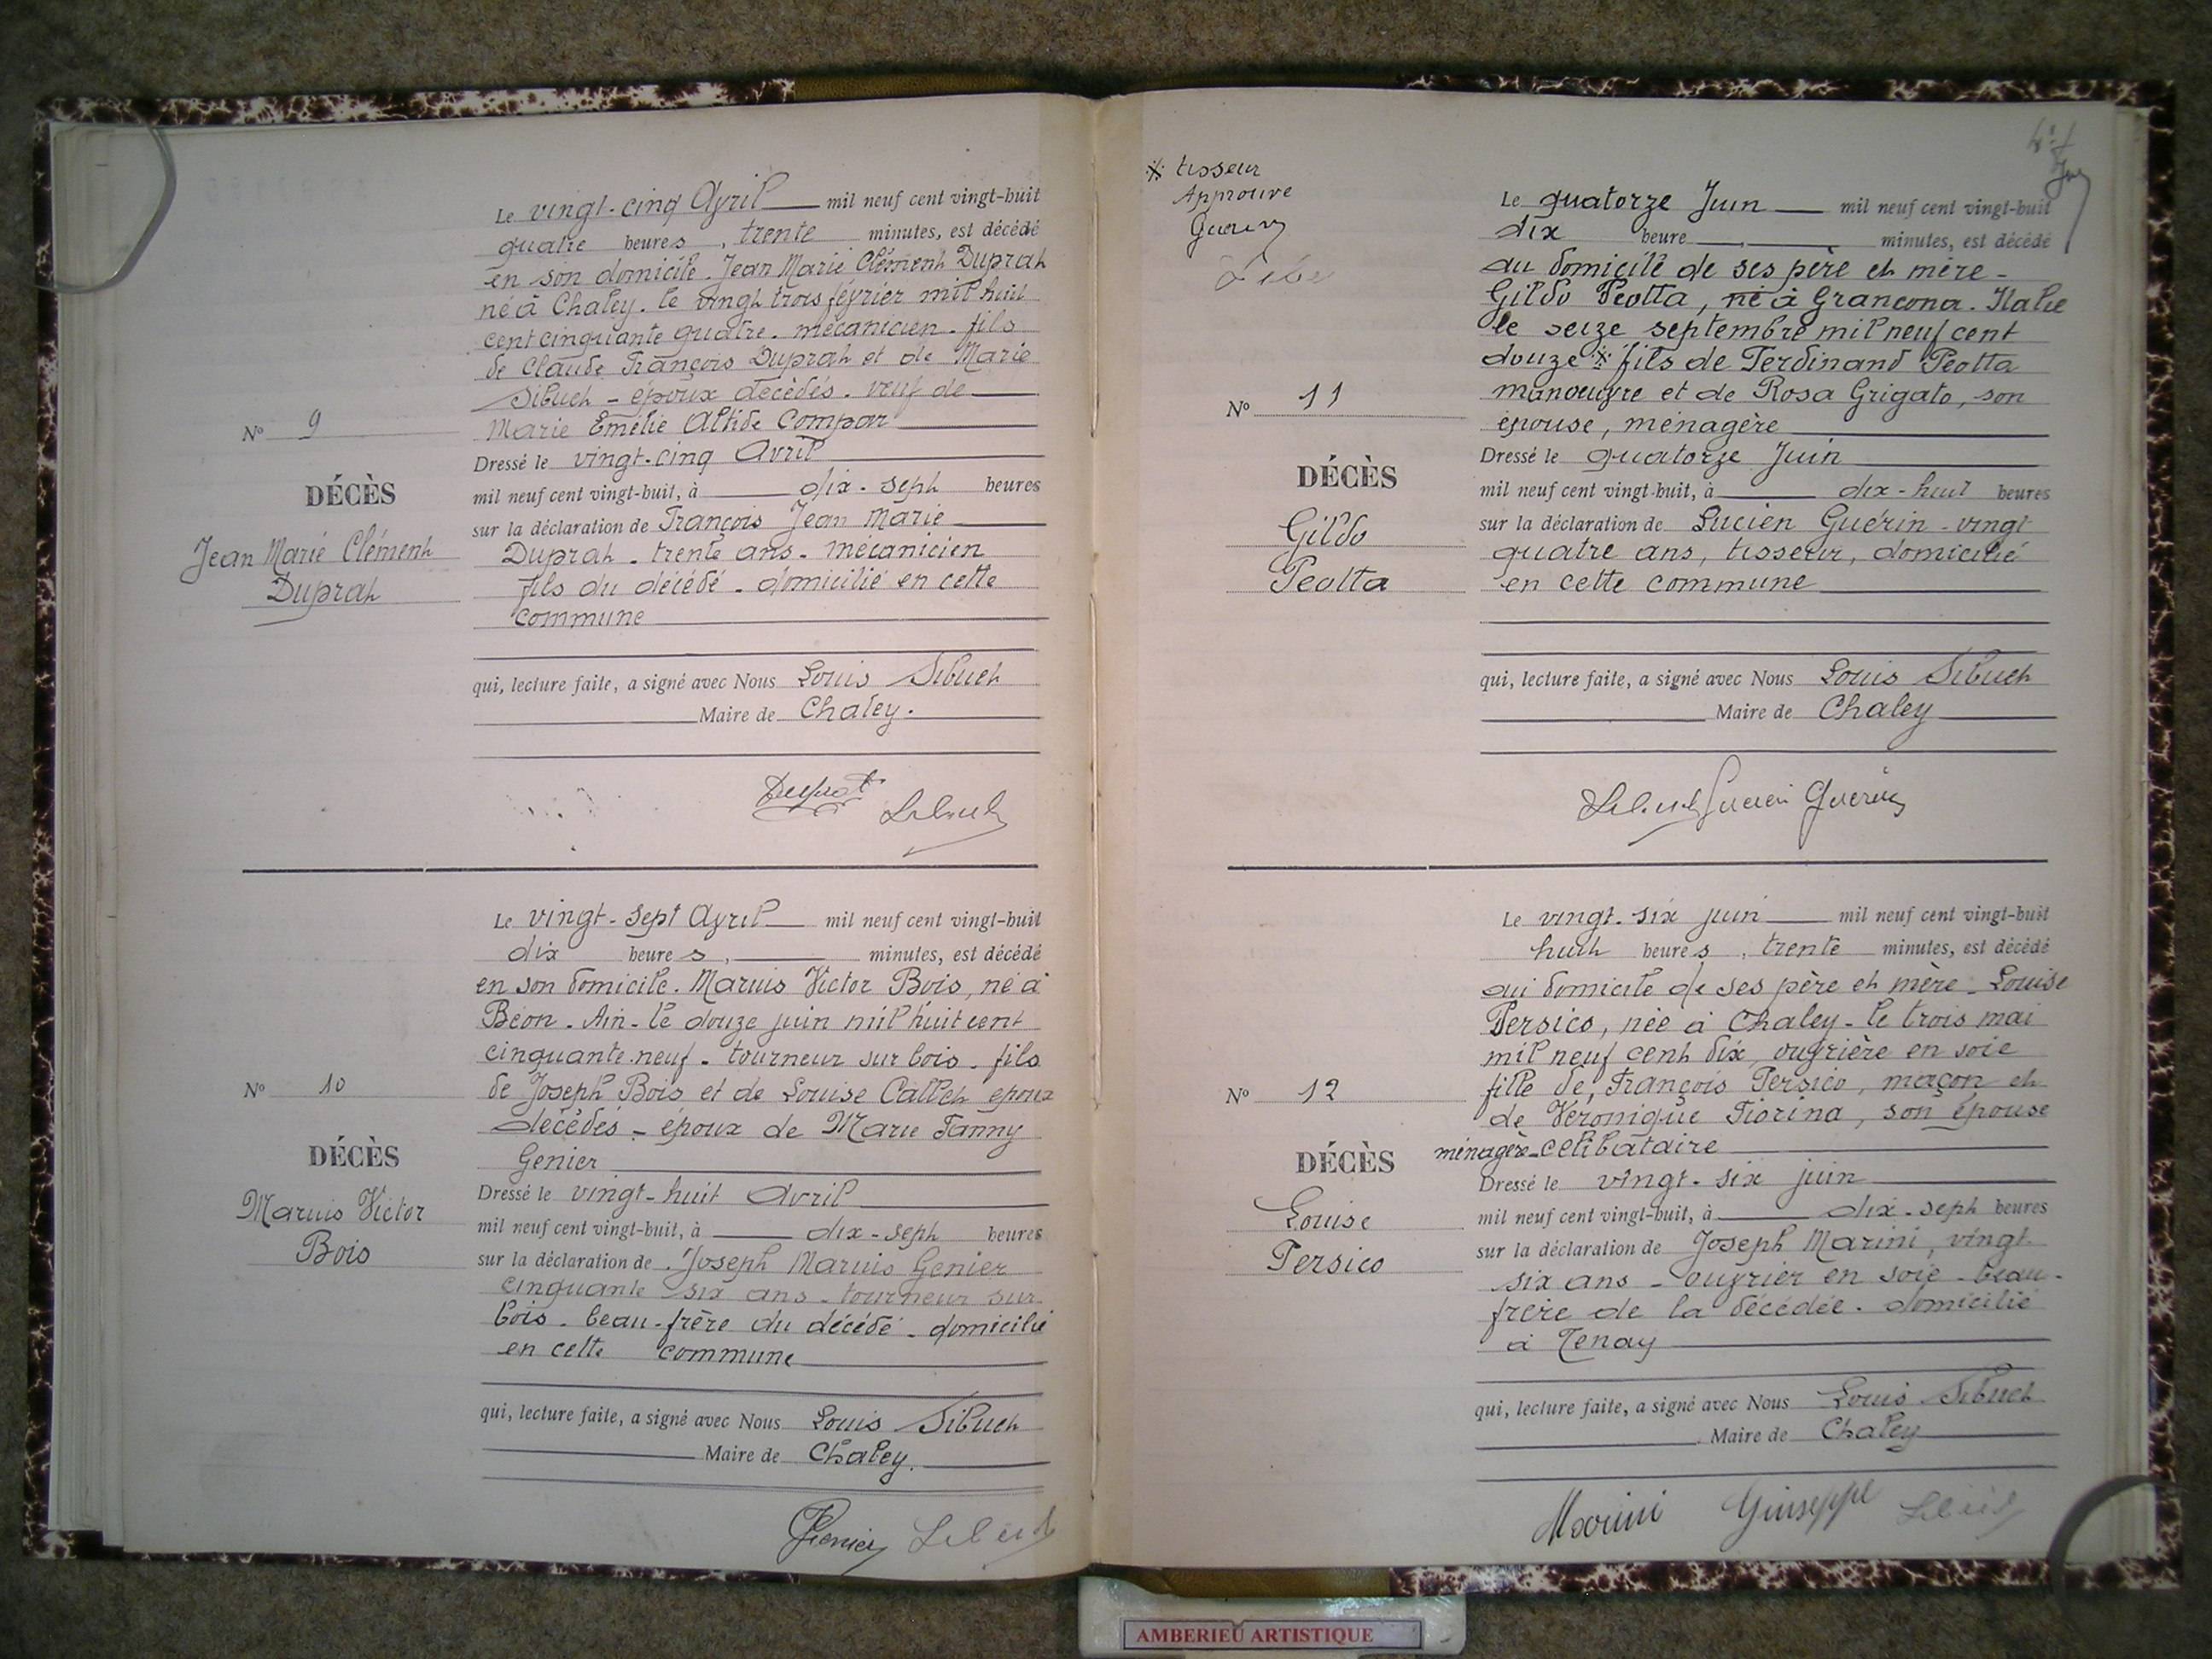 Le vingt-cinq Avril mil neuf cent vingt-huit
quatre heures, trente minutes, est décédé
en son domicile. Jean Marie Clément Duprat
né à Chaley. le vingt trois février mil huit
cent cinquante quatre. mécanicien. fils
de Claude François Duprat et de Marie
Sibuet - époux décédés. veuf de
Marie Emélie
Nº 9
DÉCÈS
Jean Marie Clément
Duprat
Dressé le vingt-cinq Avril
mil neuf cent vingt-huit, à dix-sept heures
sur la déclaration de François Jean Marie
Duprat. trente ans. mécanicien
fils du décédé. domicilié en cette
commune
qui, lecture faite, a signé avec Nous Louis Sibuet
Maire de Chaley.
Duprat Sibuet
Le vingt-sept Avril mil neuf cent vingt-huit
dix heures, minutes, est décédé
en son domicile. Marius Victor Bois, né à
Béon. Ain. le douze juin mil huit cent
cinquante-neuf. tourneur sur bois. fils
de Joseph Bois et de Louise Callet époux
décédés - époux de Marie Fanny
Genier
Nº 10
DÉCÈS
Marius Victor
Bois
Dressé le vingt-huit Avril
mil neuf cent vingt-huit, à dix-sept heures
sur la déclaration de Joseph Marius Genier
cinquante six ans. tourneur sur
bois. beau-frère du décédé. domicilié
en cette commune
qui, lecture faite, a signé avec Nous Louis Sibuet
Maire de Chaley.
Genier Sibuet
※ tisseur
Approuvé
Guérin
Le quatorze Juin mil neuf cent vingt-huit
dix heure, minutes, est décédé
au domicile de ses père et mère -
Gildo Peotta, né à Grancona. Italie
le seize septembre mil neuf cent
douze ※ fils de Ferdinand Peotta
manoeuvre et de Rosa Grigato, son
épouse, ménagère
Nº 11
DÉCÈS
Gildo
Peotta
Dressé le quatorze Juin
mil neuf cent vingt-huit, à dix-huit heures
sur la déclaration de Lucien Guérin - vingt
quatre ans, tisseur, domicilié
en cette commune
qui, lecture faite, a signé avec Nous Louis Sibuet
Maire de Chaley
Sibuet Lucien Guérin
Le vingt-six juin mil neuf cent vingt-huit
huit heures, trente minutes, est décédé
au domicile de ses père et mère - Louise
Persico, née à Chaley - le trois mai
mil neuf cent dix, ouvrière en soie
fille de, François Persico, maçon et
de Véronique Fiorina, son épouse
ménagère - célibataire
Nº 12
DÉCÈS
Louise
Persico
Dressé le vingt-six juin
mil neuf cent vingt-huit, à dix-sept heures
sur la déclaration de Joseph Marini, vingt
six ans - ouvrier en soie - beau-
frère de la décédée. domicilié
à Tenay
qui, lecture faite, a signé avec Nous Louis Sibuet
Maire de Chaley
Marini Giuseppe Sibuet
AMBERIEU ARTISTIQUE